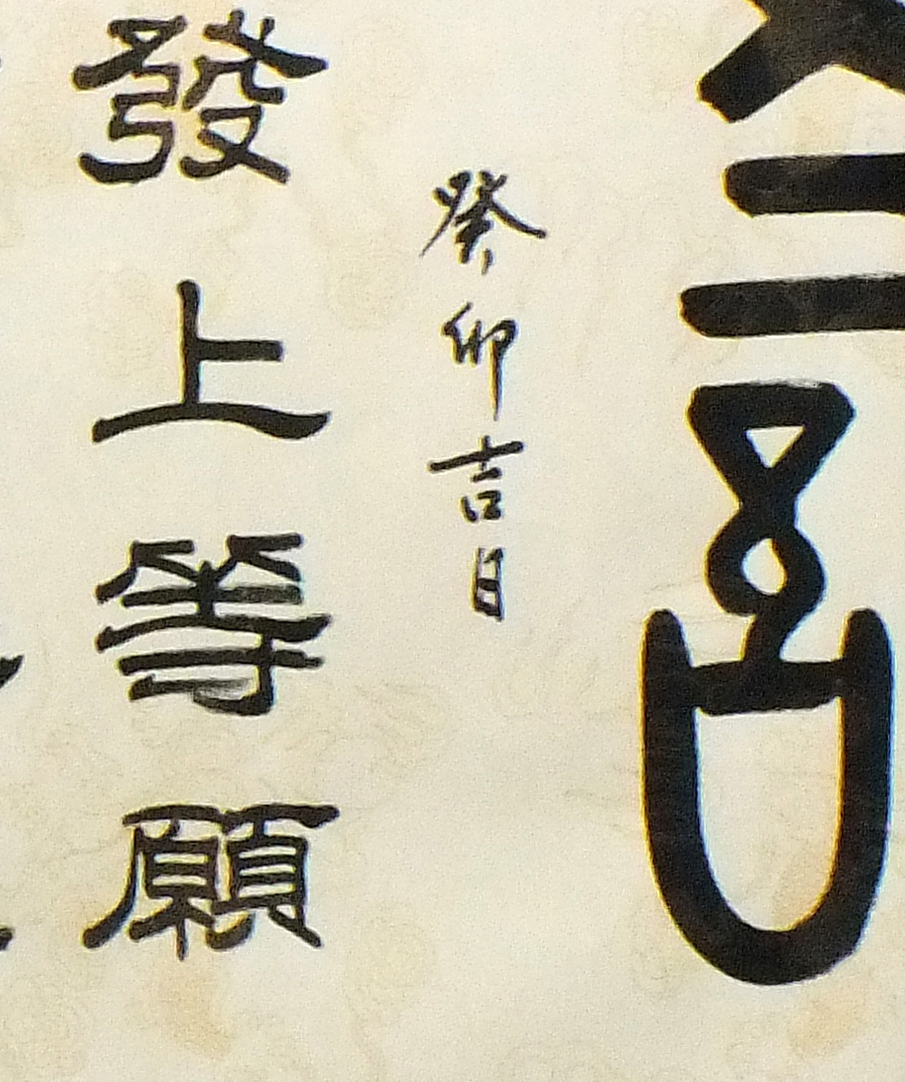 癸卯吉日
發上等願